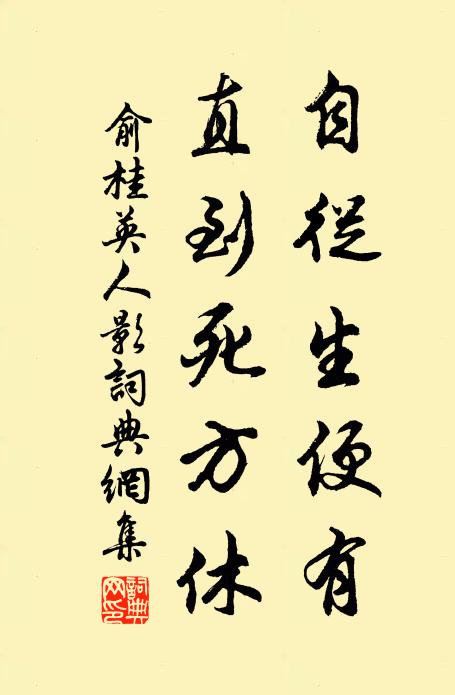 自從生便有
直到死方休
俞桂英人影詞典網集
詞典
网印